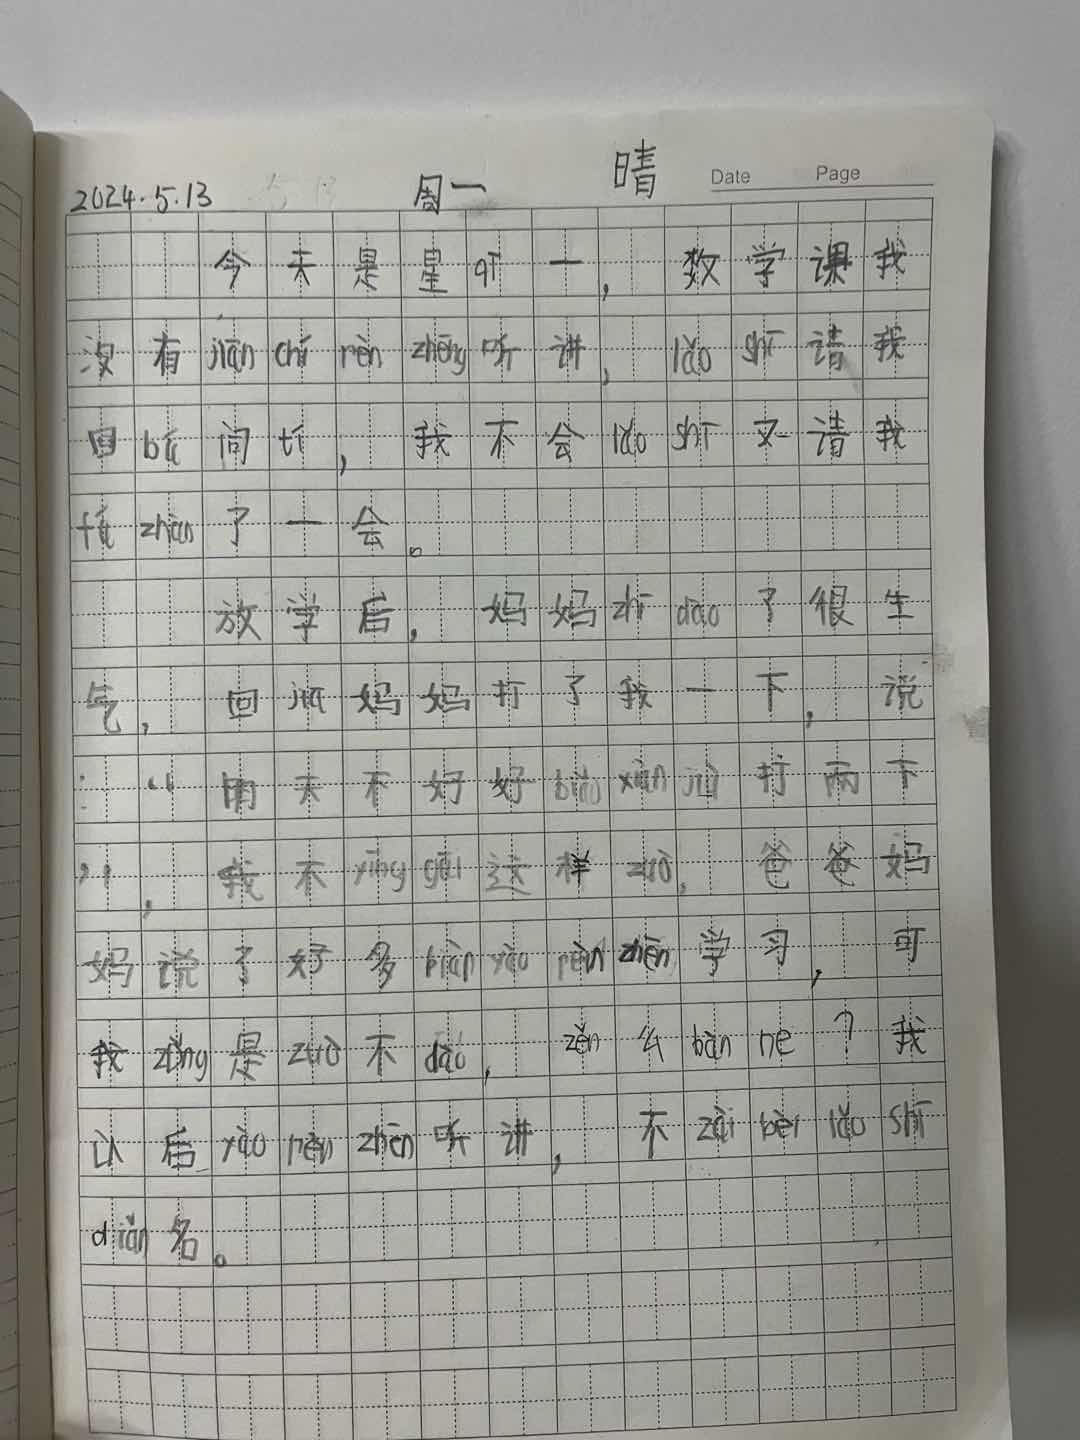 2024.5.13 周一 晴 Date Page
今天是星qī一，数学课我
没有jiān chí rèn zhēng听讲，lǎo shī请我
回 问tí，我不会lǎo shī又请我
fá zhàn了一会。
放学后，妈妈zhī dào了很生
气，回jiā妈妈打了我一下，说
：“明天不好好biǎo xiàn jiù打两下
”，我不yīng gāi这样zuò，爸爸妈
妈说了好多biàn yào rèn zhēn学习，可
我zǒng是zuò不dào，zěn么bàn ne？我
以后yào rèn zhēn听讲，不zài bèi lǎo shī
diǎn名。